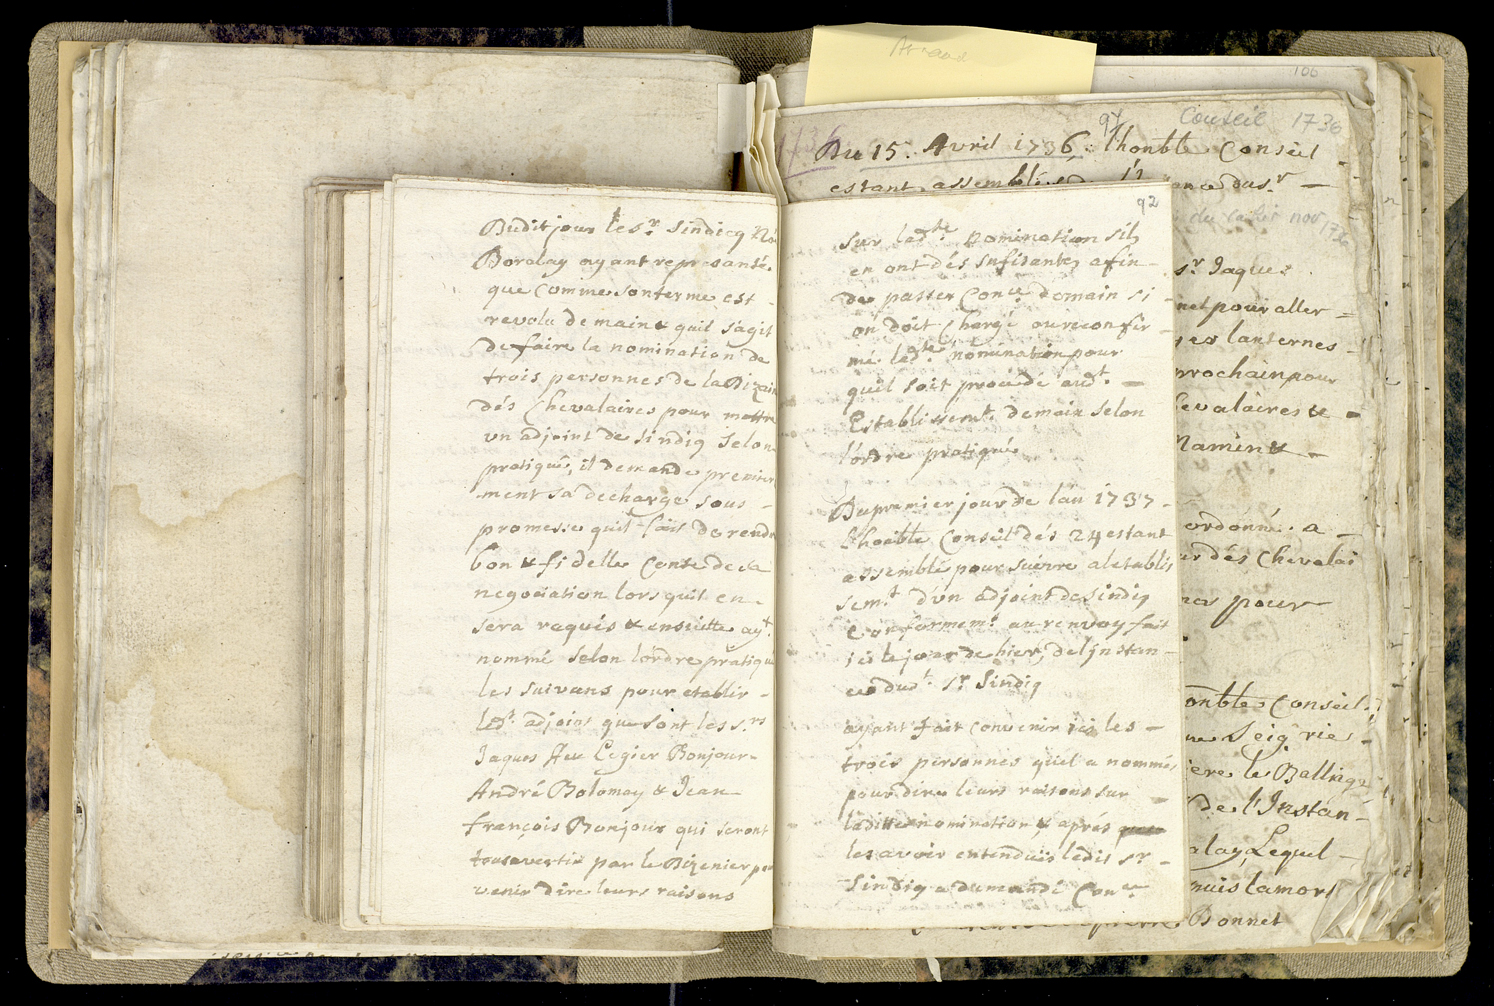 Dudit jour le Sr. Sindicq
Boralay ayant represanté
que comme son terme est
revolu demain & quil s'agit
de faire la nomination de
trois personnes de la Dizain
dés Chevalaires pour mettre
un adjoint de Sindiq Selon
pratiqué, il demande premier
ment sa decharge sous
promesse quil fait de rendr
bon & fidelle Conte de sa
negociation lors quil en
sera requis & ensuitte ayt.
nommé selon lordre pratiqué
les suivans pour establir
ledt. adjoint que sont les Srs
Jaques feu Legier Bonjour
André Bolomey & Jean
françois Bonjour qui seront
tous avertis par le Dizenier po
venir dire leurs raisons
92
sur ladte. nomination silz
en ont dés sufisantes afin
de passer Conce. domain si
on doit Chargé ou reconfir
mé ladte. nomination pour
quil soit procedé audt.
Establissemt. demain selon
l'ordre pratiqué
Du premier jour de lan 1737
Lhonble Conseil dés 24 estant
assemblé pour suivre al establis
semt. d'un adjoint de sindiq
Conformemt. au renvoy fait
ici le jour de hier, de ljnstan
ce dudt. Sr. Sindiq
ayant fait convenir ici les
trois personnes quil a nommés
pour dire leurs raisons sur
laditte nomination, & aprés
les avoir entenduis ledit Sr
Sindiq a demandé Conce
Arnaud
106
97
Conseil 1736
1736
Du 15. Avril 1736, Lhonble Conseil
estant assemblé
du cahier nov 1736
Sr Jaques
pour aller
lanternes
prochain pour
Chevalaires &
ordonné a
dés Chevalai
pour
honble Conseil
Seigrie
le Balliqz
de l'Instan
Lequel
la mort
Bonnet